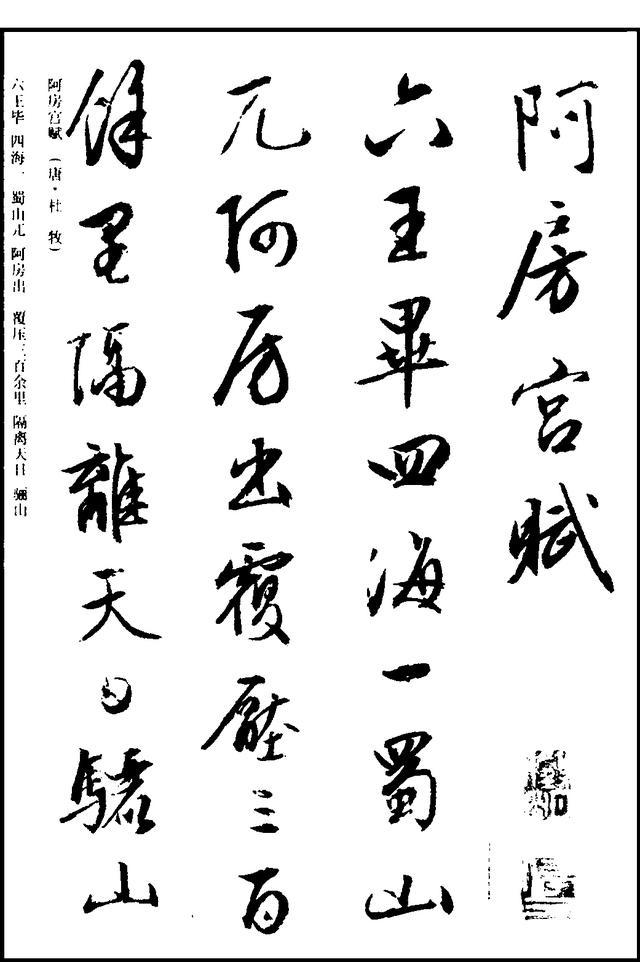 阿房宫賦
六王畢四海一蜀山
兀阿房出覆壓三百
餘里隔離天日驪山
阿房宫赋（唐·杜 牧）
六王毕 四海一 蜀山兀 阿房出 覆压三百余里 隔离天日 骊山